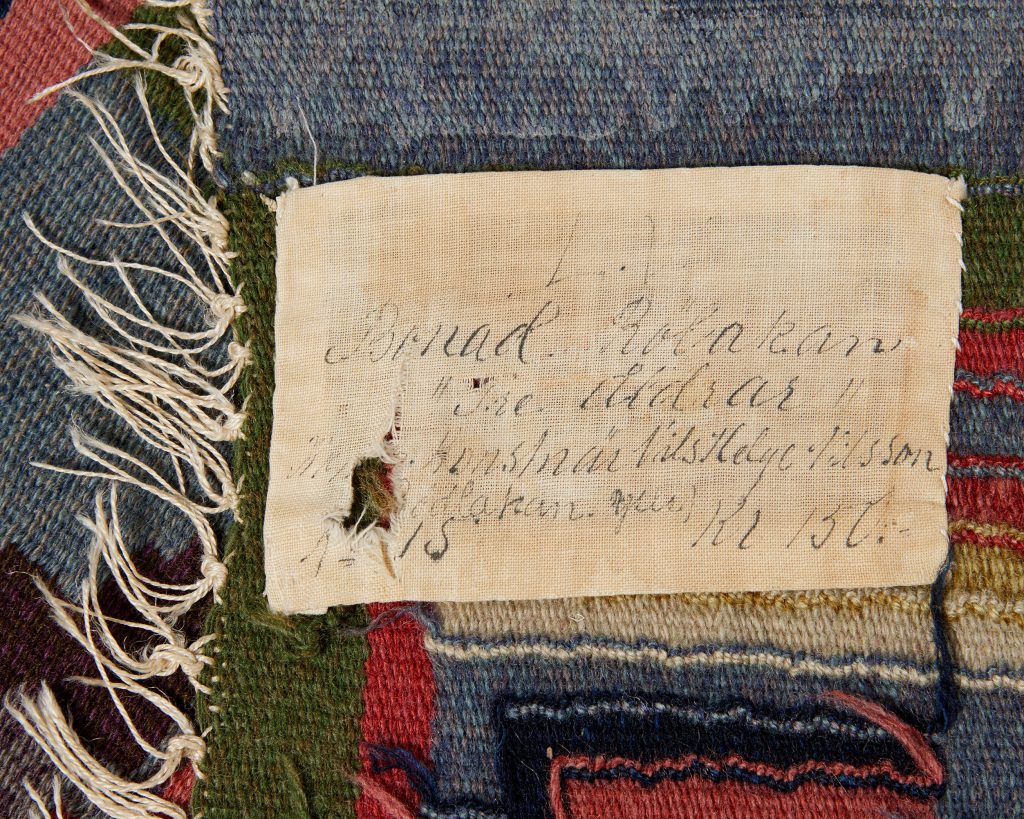 Bonad. Röllakan
" Tre Åldrar "
Konstnär Nils Helge Nilsson
Röllakan
No 15 Kr 150:-